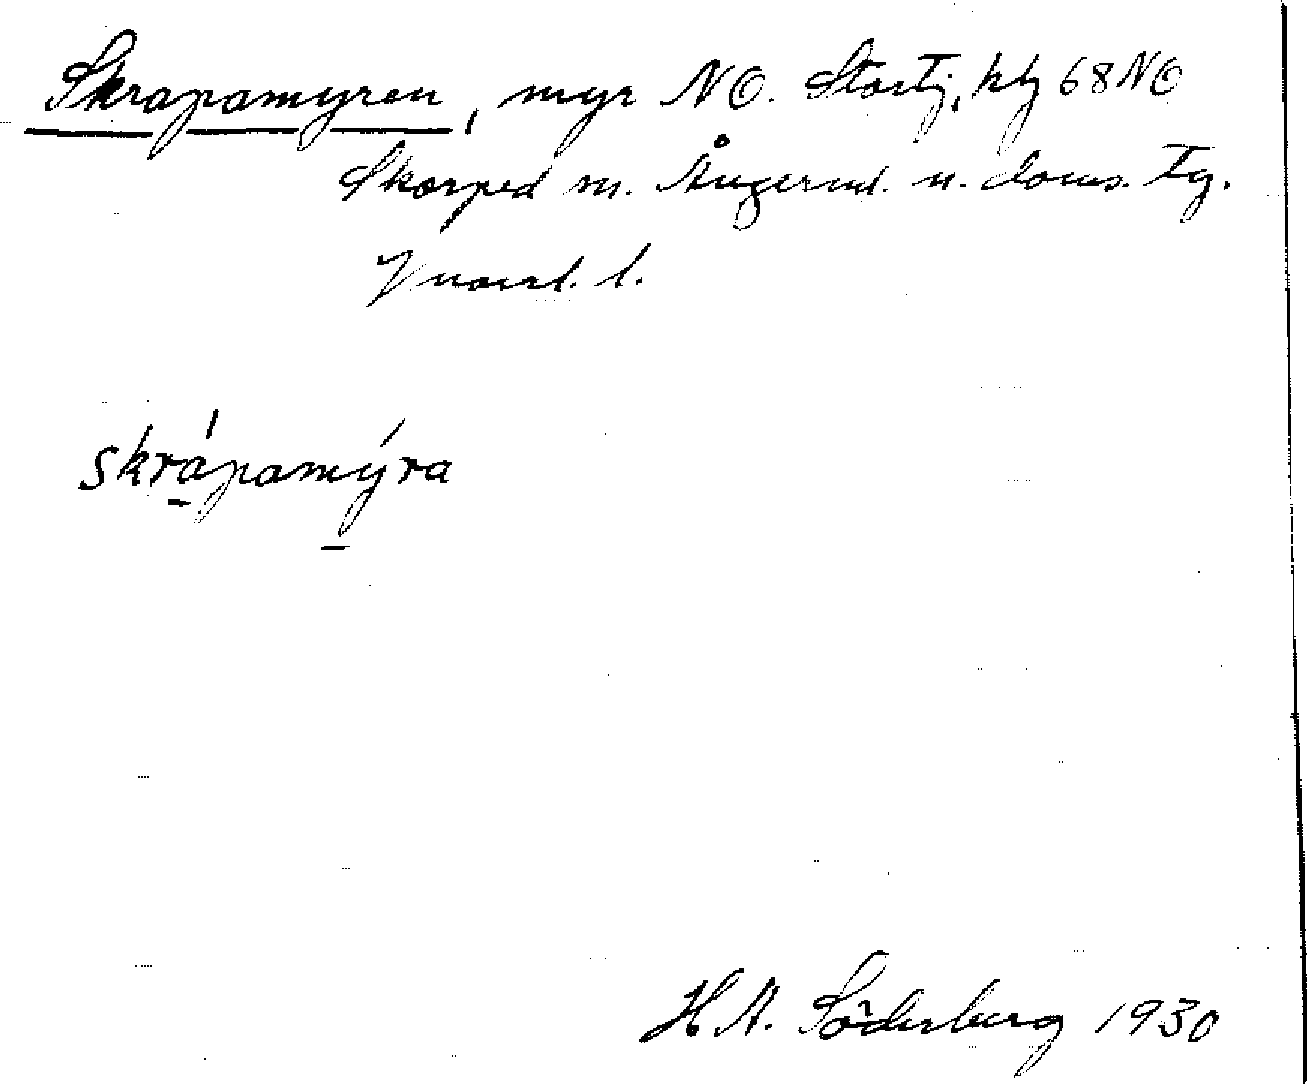 Skrapamyren, myr NO. Stortj. kbl 68 NO
Skorped m. Ångerml. n. doms. Tg.
Vnorrl. l.
skrápamýra
H. A. Söderberg 1930